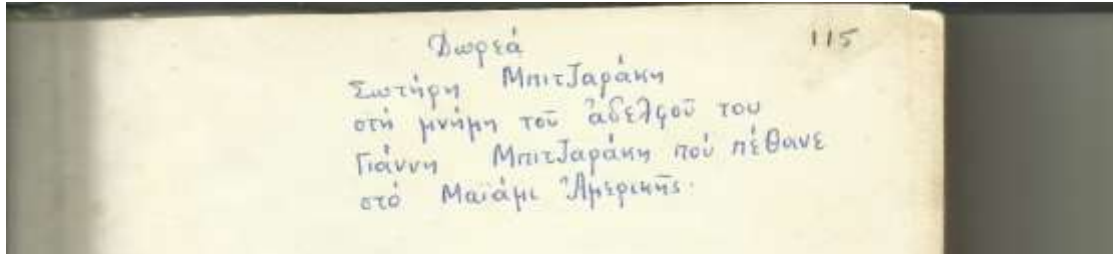 Δωρεά 115
Σωτήρη Μπιτζαράκη
στή μνήμη τοῦ ἀδελφοῦ του
Γιάννη Μπιτζαράκη πού πέθανε
στό Μαϊάμι Ἀμερικῆς.